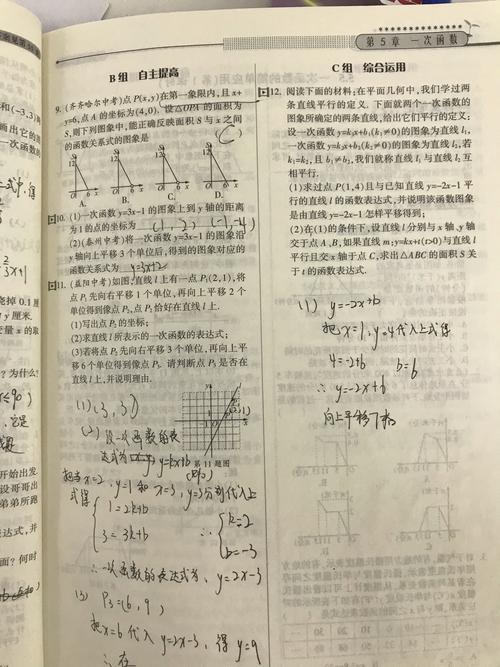 第 5 章 一次函数
B 组 自主提高
9. (齐齐哈尔中考)点 P(x,y)在第一象限内,且 x+
y=6,点 A 的坐标为(4,0). 设△OPA 的面积为
S,则下列图象中,能正确反映面积 S 与 x 之间
的函数关系式的图象是 ( C )
A. B. C. D.
10. (1)一次函数 y=3x-1 的图象上到 y 轴的距离
为 1 的点的坐标为 (1, 2) (-1, -4)
(2)(泰州中考)将一次函数 y=3x-1 的图象沿
y 轴向上平移 3 个单位后,得到的图象对应的
函数关系式为 y=3x+2
11. (益阳中考)如图,直线 l 上有一点 P₁(2,1),将
点 P₁ 先向右平移 1 个单位,再向上平移 2 个
单位得到像点 P₂,点 P₂ 恰好在直线 l 上.
(1)写出点 P₂ 的坐标;
(2)求直线 l 所表示的一次函数的表达式;
(3)若将点 P₂ 先向右平移 3 个单位,再向上平
移 6 个单位得到像点 P₃. 请判断点 P₃ 是否在
直线 l 上,并说明理由.
(1) (3, 3)
(2) 设一次函数的表
达式为 y=kx+b
第 11 题图
(k≠0)
把x=2, y=1 和 x=3, y=3分别代入上
式得
1=2k+b
3=3k+b
∴
k=2
b=-3
∴一次函数的表达式为, y=2x-3
(3) P₃=(6, 9)
把x=6 代入 y=2x-3, 得 y=9
∴在
C 组 综合运用
12. 阅读下面的材料:在平面几何中,我们学过两
条直线平行的定义. 下面就两个一次函数的
图象所确定的两条直线,给出它们平行的定义:
设一次函数 y=k₁x+b₁(k₁≠0)的图象为直线 l₁,
一次函数 y=k₂x+b₂(k₂≠0)的图象为直线 l₂,若
k₁=k₂,且 b₁≠b₂,我们就称直线 l₁ 与直线 l₂ 互
相平行.
(1)求过点 P(1,4)且与已知直线 y=-2x-1 平
行的直线 l 的函数表达式,并说明该函数图象
是由直线 y=-2x-1 怎样平移得到;
(2)在(1)的条件下,设直线 l 分别与 x 轴、y 轴
交于点 A、B,如果直线 m:y=kx+t(t>0)与直线 l
平行且交 x 轴于点 C,求出△ABC 的面积 S 关
于 t 的函数表达式.
(1) y=-2x+b
把x=1, y=4代入上式得
4=-2+b b=6
∴ y=-2x+6
向上平移7格